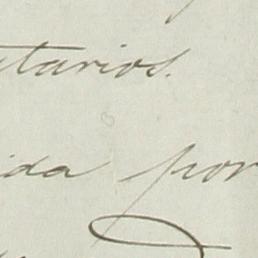 tarios.
ida por